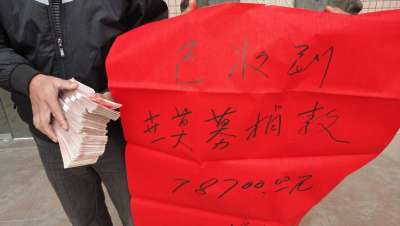 已收到
莫募捐款
78700.00元